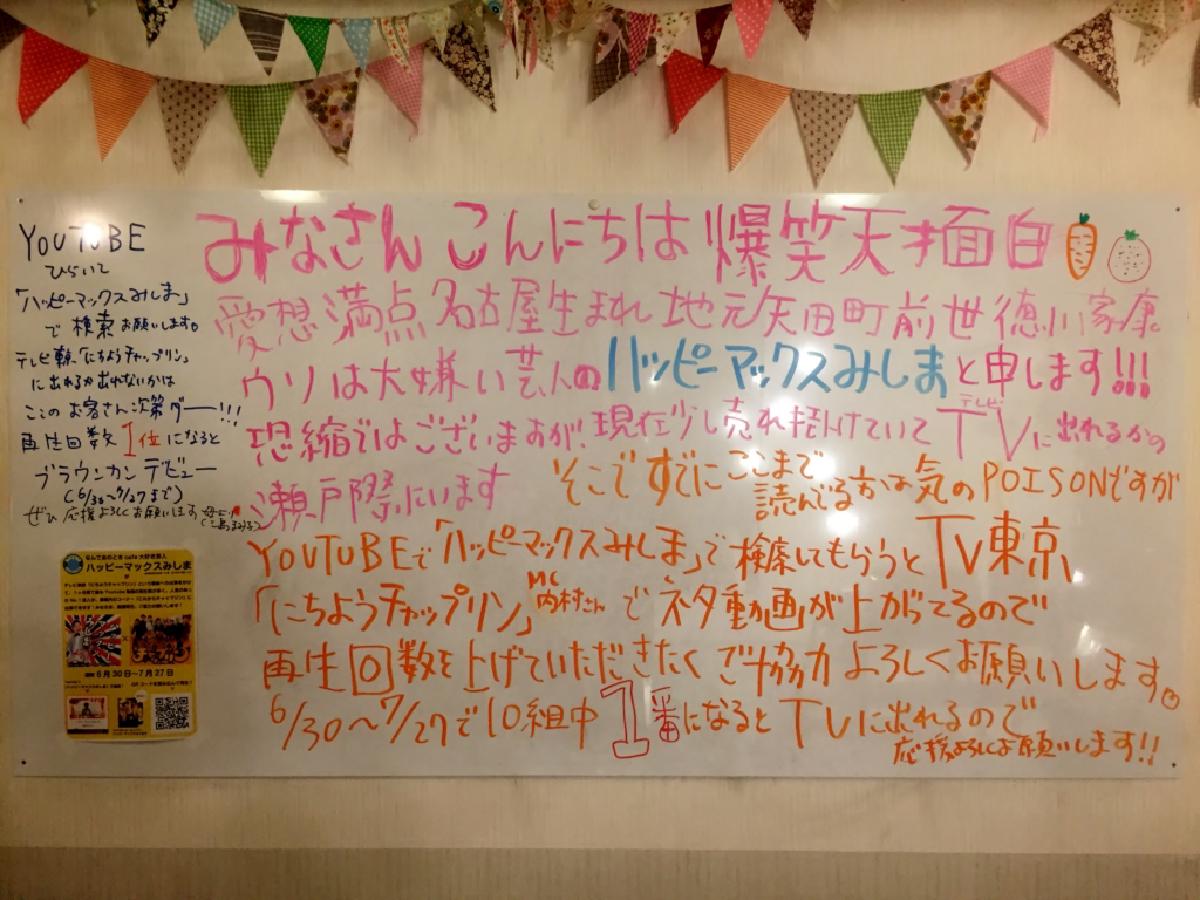 みなさん こんにちは 爆笑天才面白
愛想満点 名古屋生まれ 地元矢田町前世徳川家康
ウソは大嫌い芸人のハッピーマックスみしまと申します!!!
恐縮ではございますが、現在少し売れ掛けていてTVに出れるかの
テレビ
瀬戸際にいます
そこですでにここまで
読んでる方は気のPOISONですが
YOUTUBEで「ハッピーマックスみしま」で検索してもらうとTV東京
「にちようチャップリン」MC内村さんでネタ動画が上がってるので
再生回数を上げていただきたくご協力よろしくお願いします。
6/30〜7/27で10組中1番になるとTVに出れるので
応援よろしくお願いします!!
YOUTUBE
ひらいて
「ハッピーマックスみしま」
で検索お願いします。
テレビ東京「にちようチャップリン」
に出れるか出れないかは
ここのお客さん次第ダー!!!
再生回数1位になると
ブラウンカンデビュー
(6/30〜7/27まで)
ぜひ応援よろしくお願いします
なんであのとき cafe 大好き芸人
ハッピーマックスみしま
が
6月30日〜7月27日